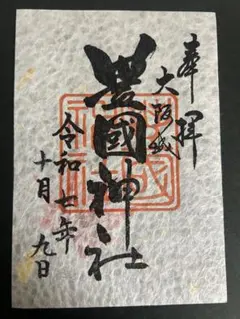 奉拝
大阪城
豊國神社
令和七年
十月九日